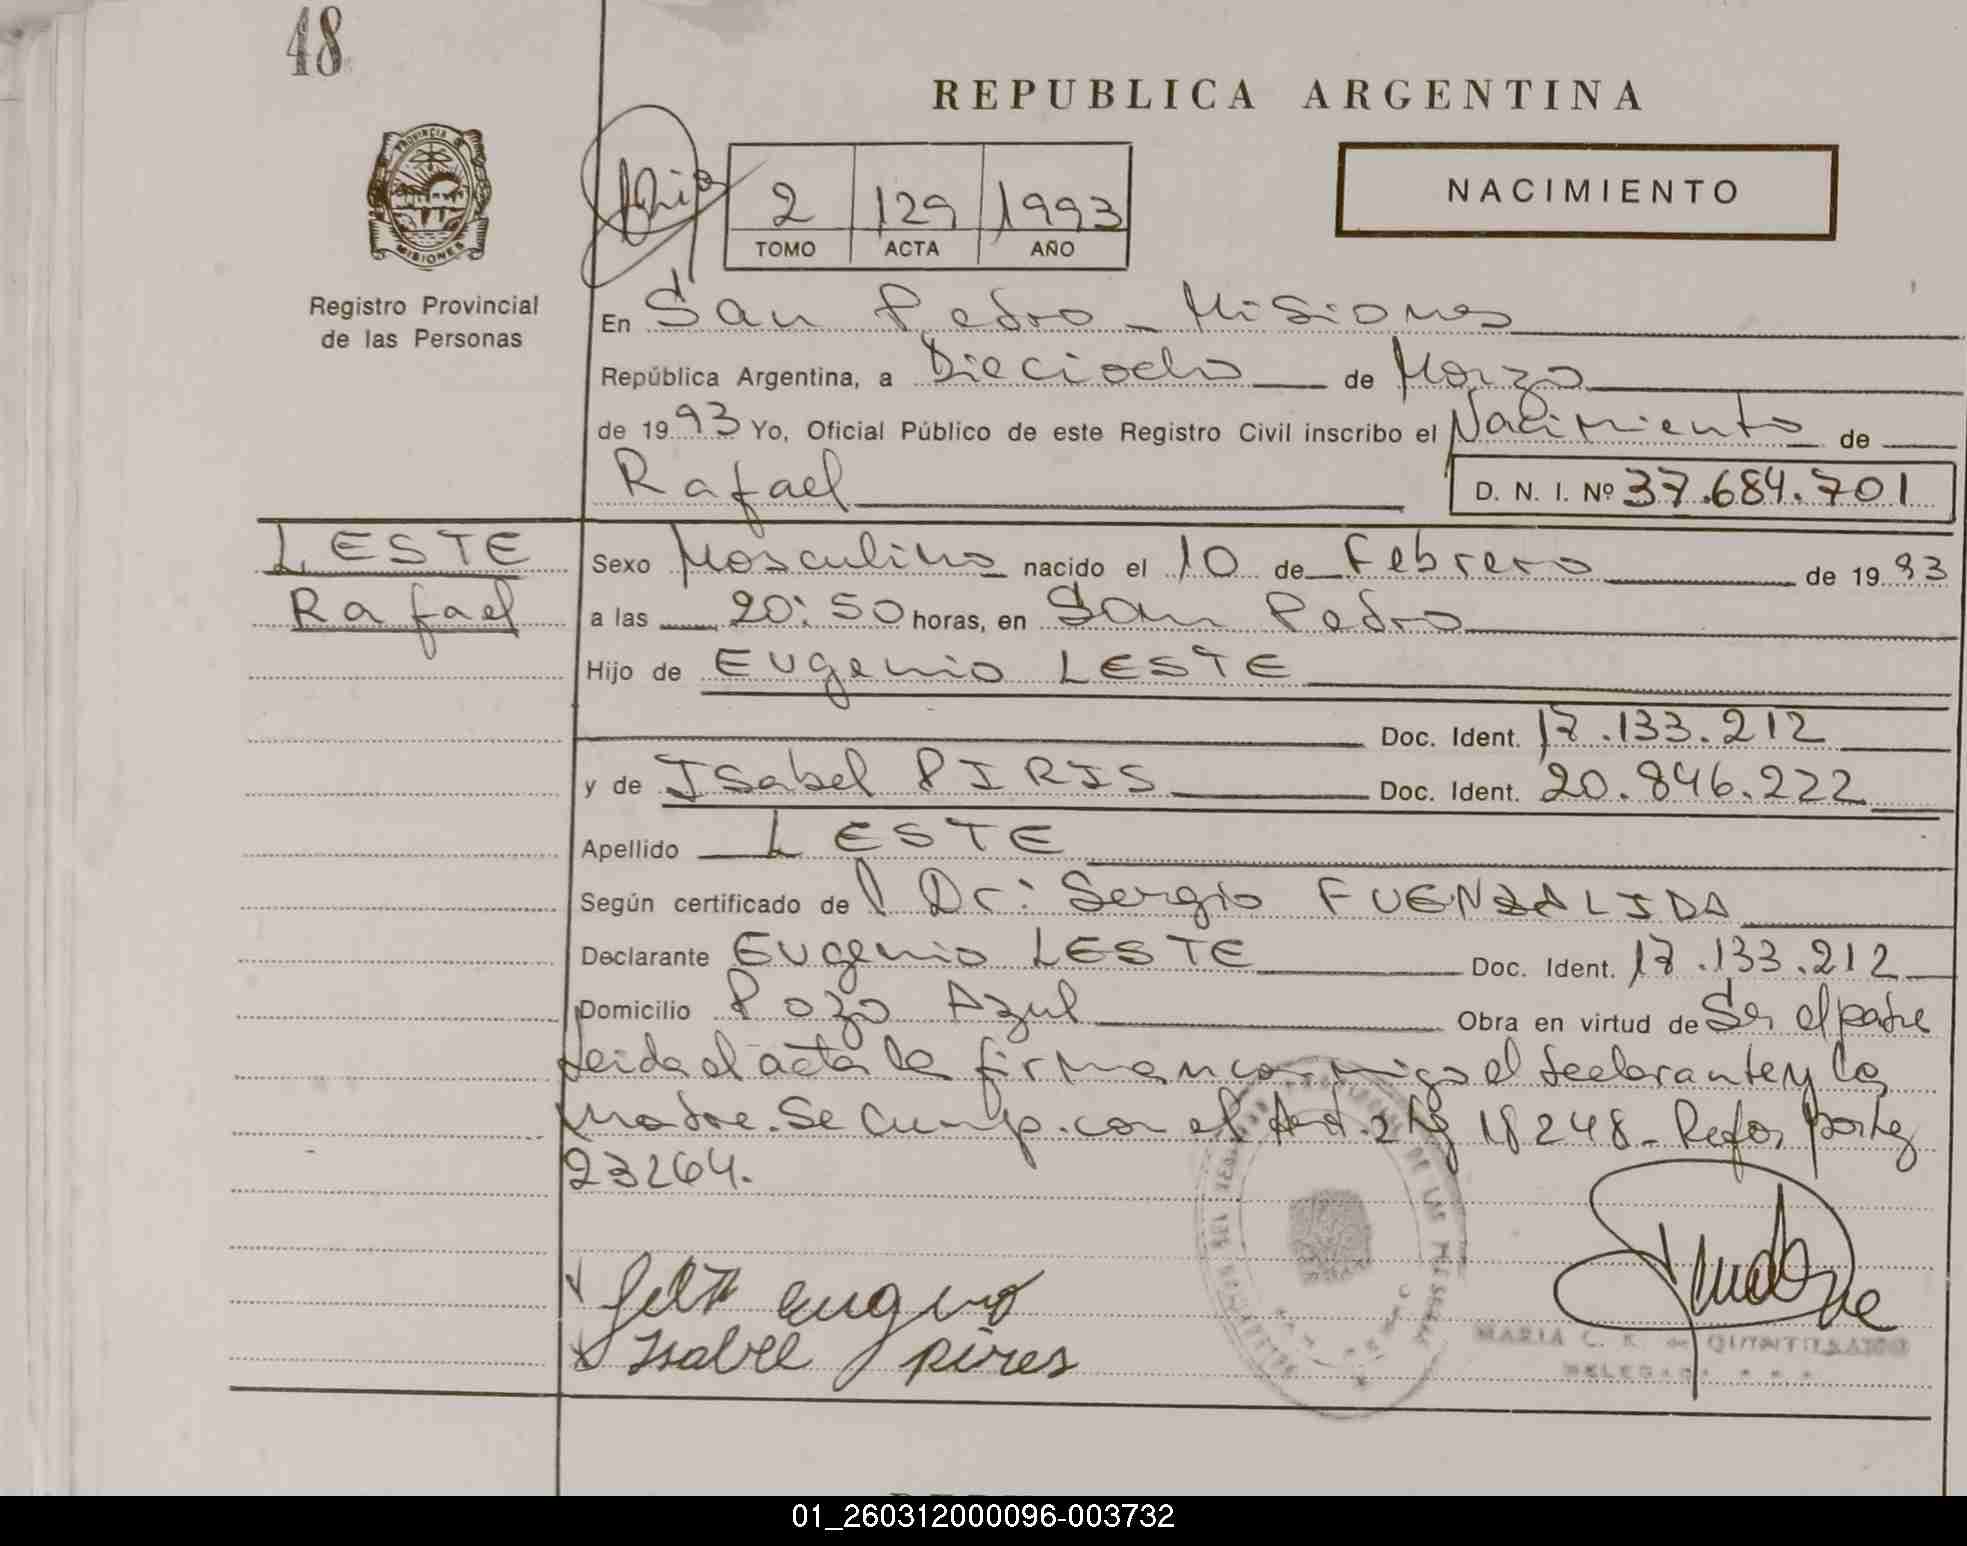 48
REPUBLICA ARGENTINA
PROVINCIA DE
MISIONES
2 129 1993
TOMO ACTA AÑO
NACIMIENTO
Registro Provincial
de las Personas
En San Pedro - Misiones
República Argentina, a Dieciocho de Marzo
de 1993 Yo, Oficial Público de este Registro Civil inscribo el Nacimiento de
Rafael D. N. I. Nº 37.684.701
LESTE
Rafael
Sexo Masculino nacido el 10 de Febrero de 1993
a las 20:50 horas, en San Pedro
Hijo de Eugenio LESTE
Doc. Ident. 17.133.212
y de Isabel PIRIS Doc. Ident. 20.846.222
Apellido LESTE
Según certificado de Dr: Sergio FUENZALIDA
Declarante Eugenio LESTE Doc. Ident. 17.133.212
Domicilio Pozo Azul Obra en virtud de Ser el padre
Leida el acta la firman conmigo el declarante y la
madre. Se Cump. con el Art. 2 Ley 18248 - Refor por Ley
23264.
Eugenio
Isabel pires
MARIA C. R. de QUINTILIANO
DELEGADA
01_260312000096-003732